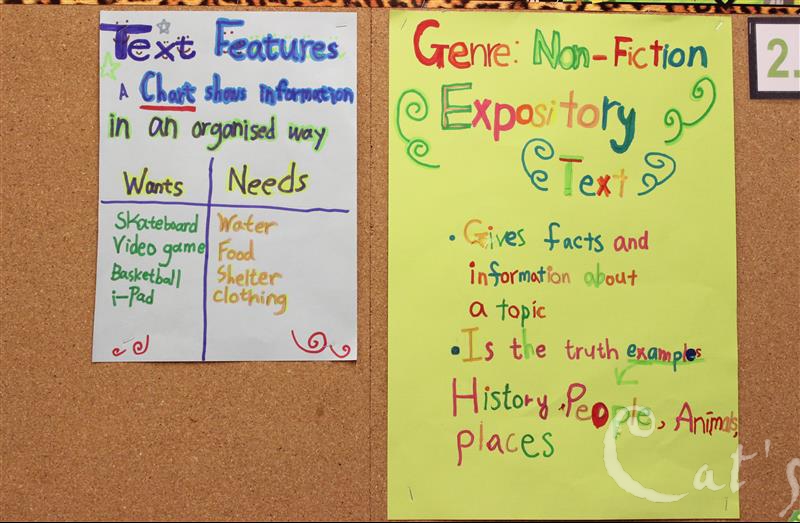 Text Features
A Chart shows information
in an organised way
Wants Needs
Skateboard Water
Video game Food
Basketball Shelter
i-Pad clothing
Genre: Non-Fiction
Expository
Text
• Gives facts and
information about
a topic
• Is the truth examples
History, People, Animals,
places
2.
Cat's